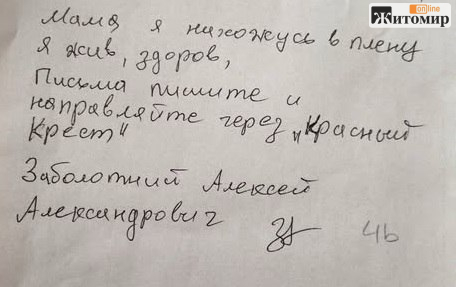 online
Житомир
Мама я нахожусь в плену
я жив, здоров,
Письма пишите и
направляйте через „Красный
Крест"
Заболотний Алексей
Александрович
4b